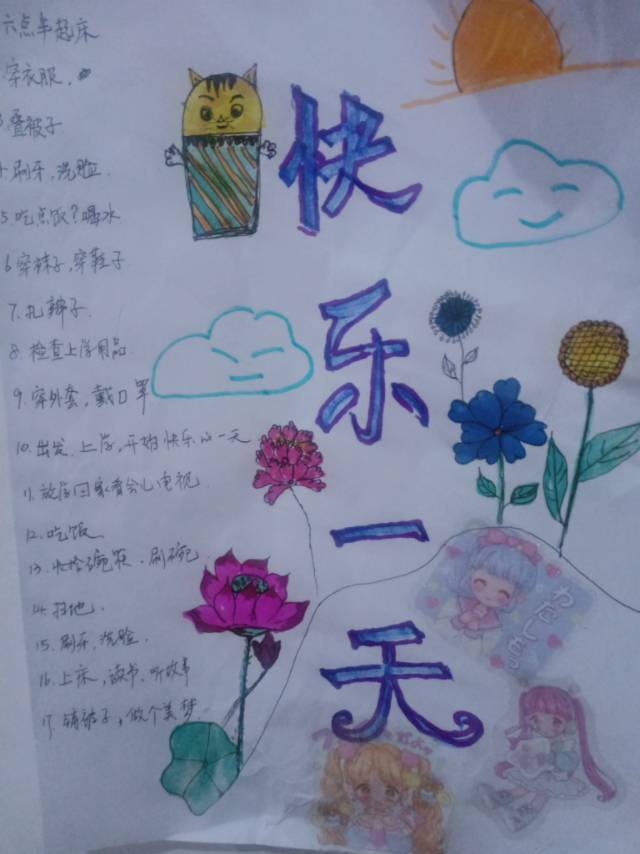 六点半起床
穿衣服.
叠被子
刷牙,洗脸.
5.吃点饭?喝水
6穿袜子,穿鞋子
7.扎辫子.
8.检查上学用品
9.穿外套,戴口罩
10.出发.上学,开始快乐的一天
11.放学回家看会儿电视
12.吃饭
13.收拾碗筷.刷碗.
14.扫地.
15.刷牙,洗脸.
16.上床,读书.听故事
17.铺被子,做个美梦
快
乐
一
天